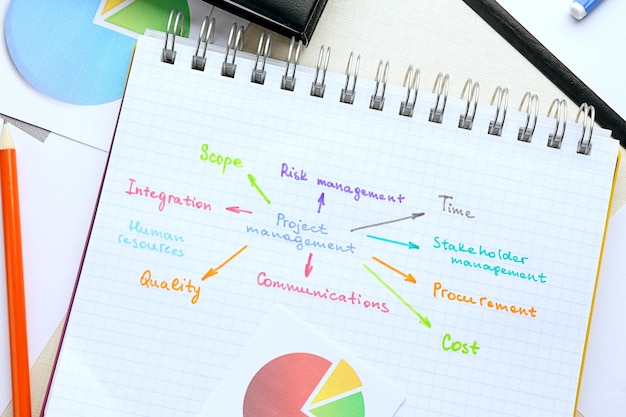 Scope
Risk management
Time
Integration
Project
management
Human
resources
Stakeholder
management
Quality
Communications
Procurement
Cost